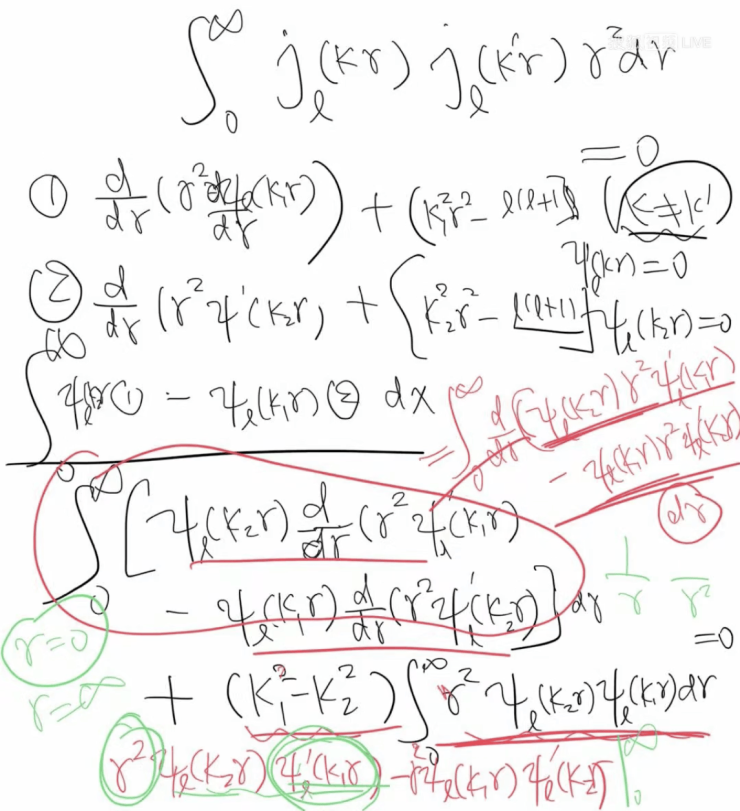 LIVE
∫₀^∞ j_ℓ(kr) j_ℓ(k'r) r² dr
= 0
① d/dr (r² dψ_ℓ(k₁r)/dr) + (k₁²r² - ℓ(ℓ+1)) (k≠k')
ψ_ℓ(k₁r) = 0
② d/dr (r² ψ'(k₂r) + [k₂²r² - ℓ(ℓ+1)] ψ_ℓ(k₂r) = 0
∫₀^∞ ψ_ℓ ① - ψ_ℓ(k₁r) ② dx
= ∫₀^∞ d/dr (ψ_ℓ(k₂r) r² ψ_ℓ'(k₁r)
- ψ_ℓ(k₁r) r² ψ_ℓ'(k₂r)
dr
∫₀^∞ [ψ_ℓ(k₂r) d/dr (r² ψ_ℓ'(k₁r)
- ψ_ℓ(k₁r) d/dr (r² ψ_ℓ'(k₂r)] dr
1/r 1/r²
r=0
= 0
r=∞
+ (k₁² - k₂²) ∫₀^∞ r² ψ_ℓ(k₂r) ψ_ℓ(k₁r) dr
r² ψ_ℓ(k₂r) ψ_ℓ'(k₁r) - r² ψ_ℓ(k₁r) ψ_ℓ'(k₂r) |₀^∞